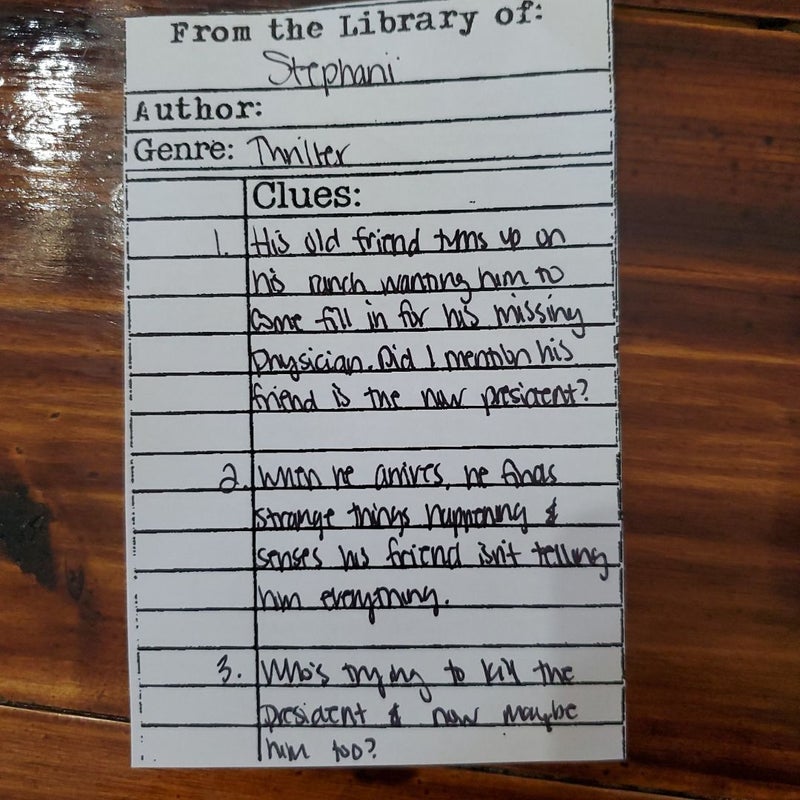 From the Library of:
Stephani
Author:
Genre: Thriller
Clues:
1. His old friend turns up on
his ranch wanting him to
come fill in for his missing
physician. Did I mention his
friend is the new president?
2. When he arrives, he finds
strange things happening &
senses his friend isn't telling
him everything.
3. Who's trying to kill the
president & now maybe
him too?